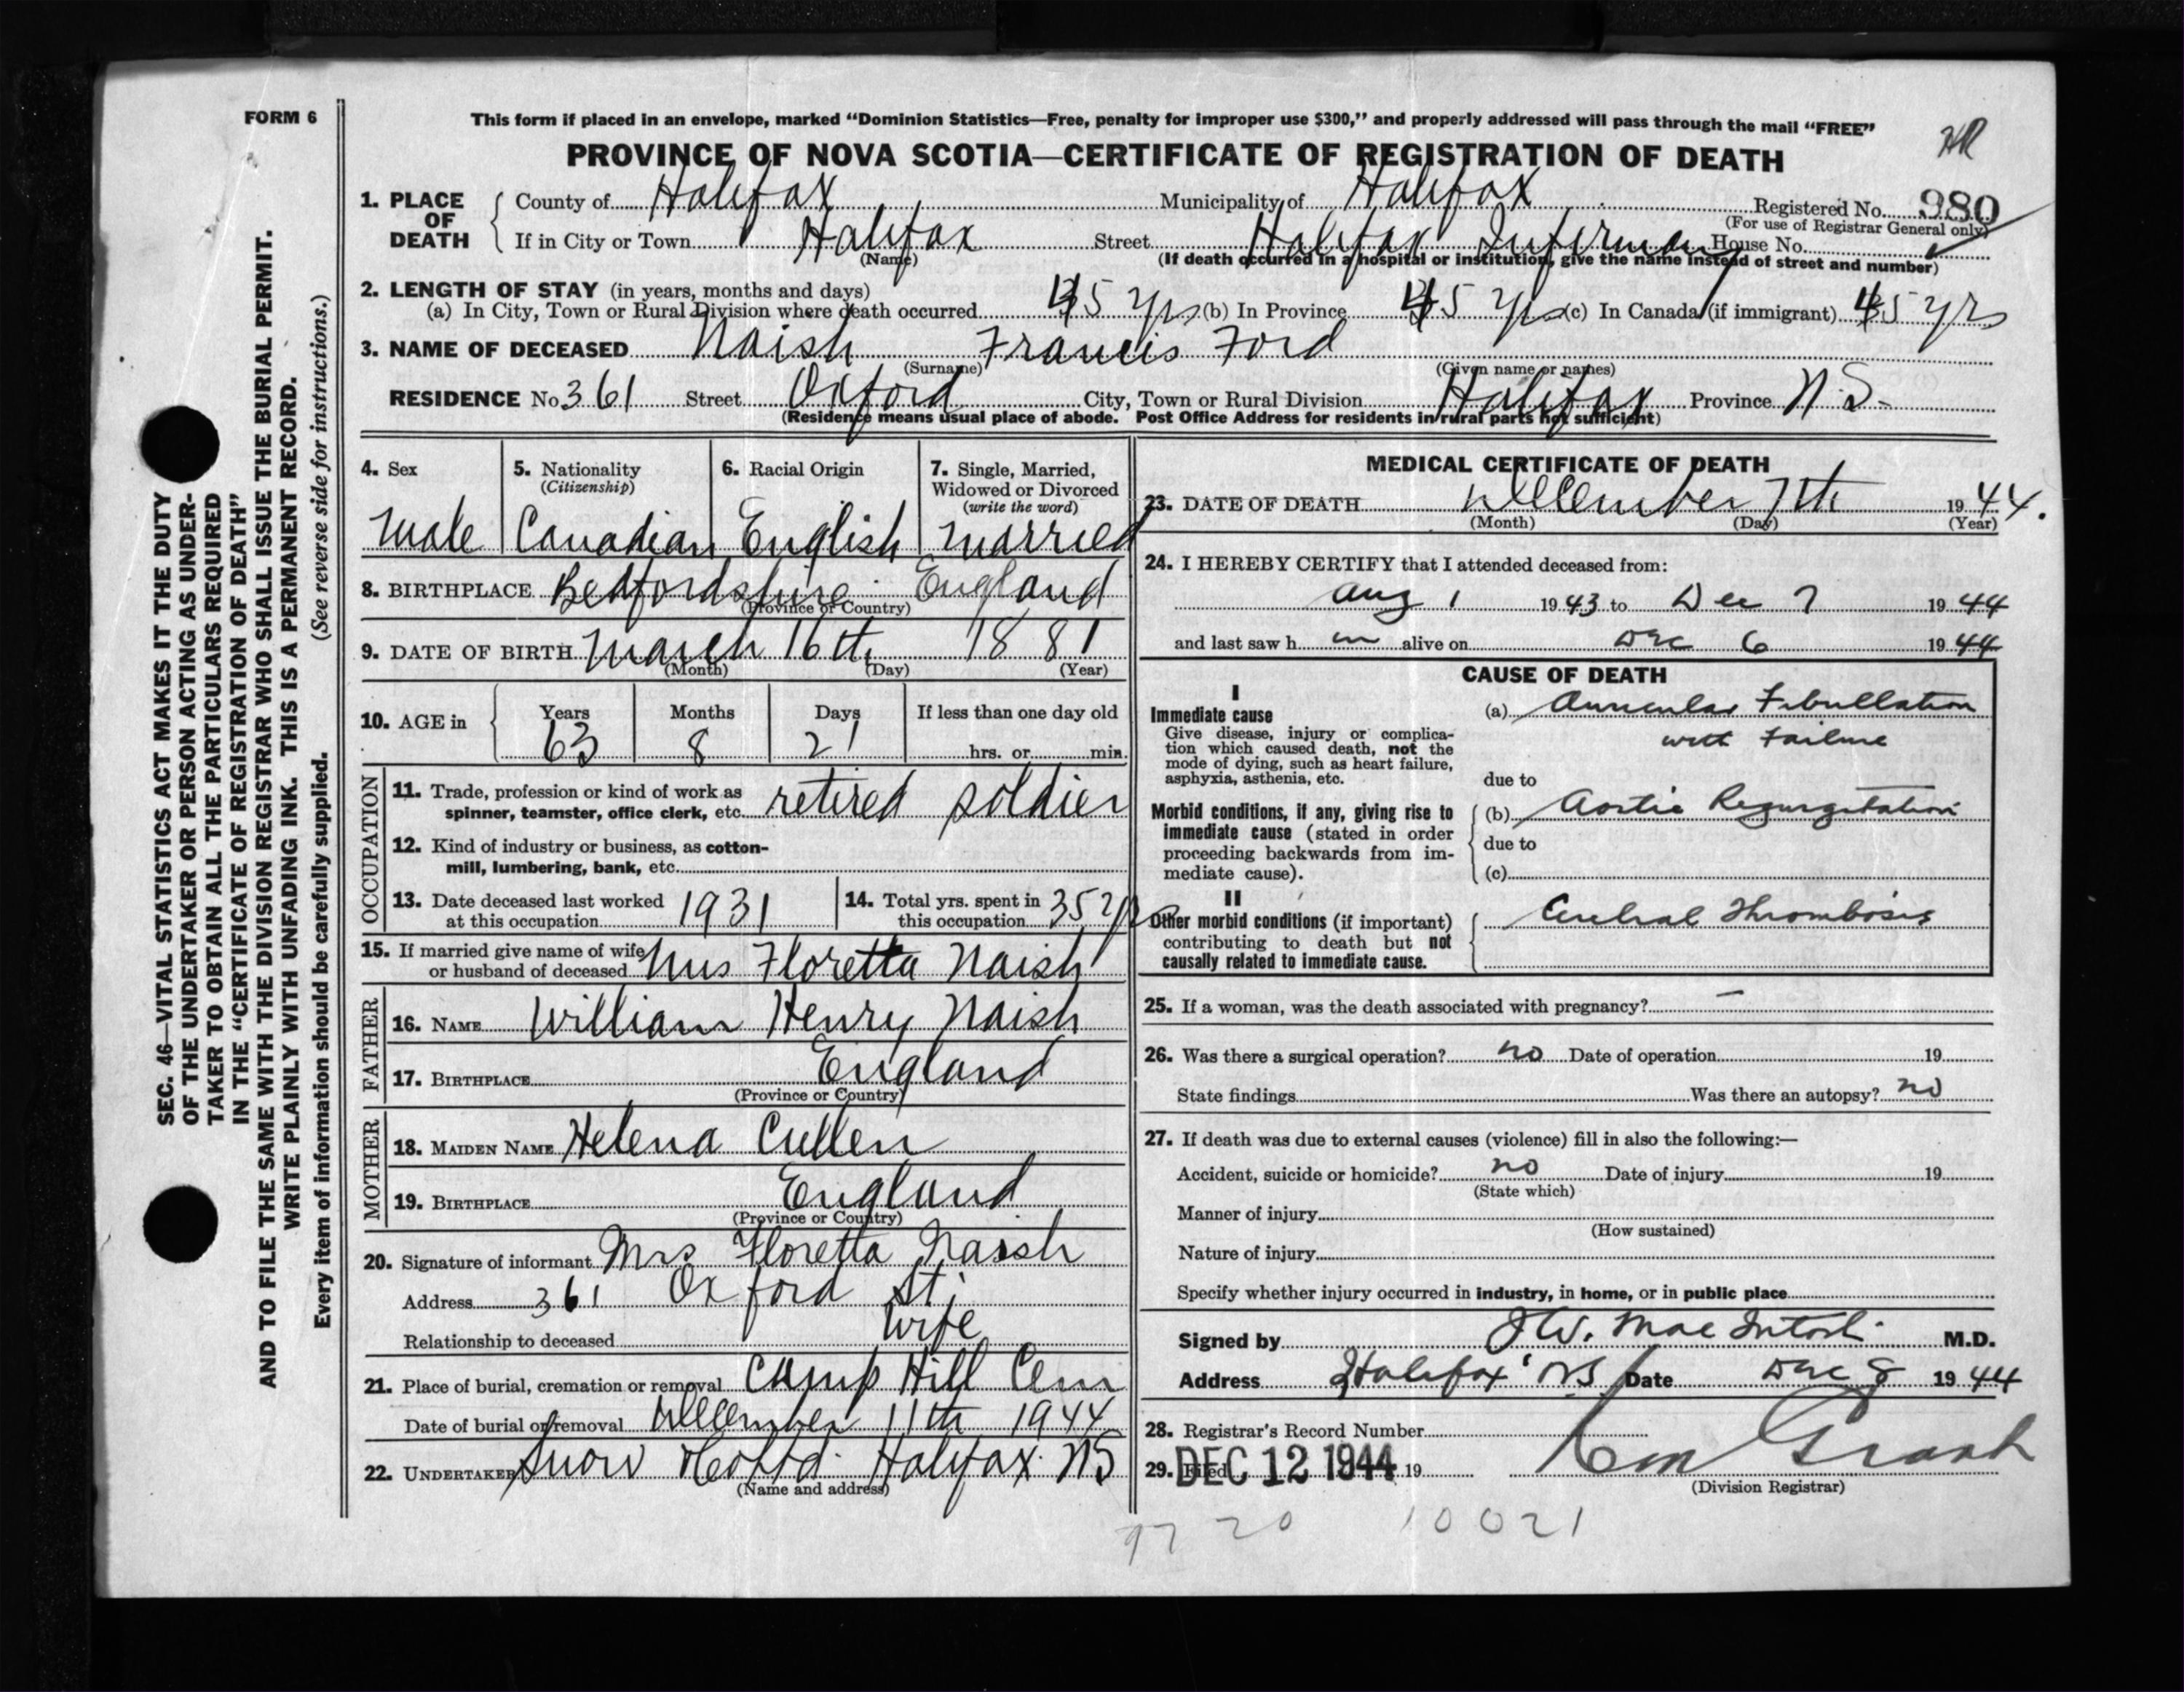 FORM 6
This form if placed in an envelope, marked “Dominion Statistics—Free, penalty for improper use $300,” and properly addressed will pass through the mail “FREE”
HR
PROVINCE OF NOVA SCOTIA—CERTIFICATE OF REGISTRATION OF DEATH
1. PLACE OF DEATH
County of Halifax Municipality of Halifax Registered No. 980
(For use of Registrar General only)
If in City or Town Halifax Street Halifax Infirmary House No.
(Name) (If death occurred in a hospital or institution, give the name instead of street and number)
2. LENGTH OF STAY (in years, months and days)
(a) In City, Town or Rural Division where death occurred 45 yrs (b) In Province 45 yrs (c) In Canada (if immigrant) 45 yrs
3. NAME OF DECEASED Naish Francis Ford
(Surname) (Given name or names)
RESIDENCE No. 361 Street Oxford City, Town or Rural Division Halifax Province N.S.
(Residence means usual place of abode. Post Office Address for residents in rural parts not sufficient)
4. Sex
male
5. Nationality
(Citizenship)
Canadian
6. Racial Origin
English
7. Single, Married,
Widowed or Divorced
(write the word)
married
8. BIRTHPLACE Bedfordshire England
(Province or Country)
9. DATE OF BIRTH March 16th 1881
(Month) (Day) (Year)
10. AGE in
Years Months Days If less than one day old
63 8 21 hrs. or min.
OCCUPATION
11. Trade, profession or kind of work as
spinner, teamster, office clerk, etc. retired soldier
12. Kind of industry or business, as cotton-
mill, lumbering, bank, etc.
13. Date deceased last worked
at this occupation 1931
14. Total yrs. spent in
this occupation 35 yrs
15. If married give name of wife
or husband of deceased Mrs Floretta Naish
FATHER
16. NAME William Henry Naish
17. BIRTHPLACE England
(Province or Country)
MOTHER
18. MAIDEN NAME Helena Cullen
19. BIRTHPLACE England
(Province or Country)
20. Signature of informant Mrs Floretta Naish
Address 361 Oxford St.
Relationship to deceased Wife
21. Place of burial, cremation or removal Camp Hill Cem
Date of burial or removal December 11th 1944
22. UNDERTAKER Snow & Co Ltd. Halifax NS
(Name and address)
MEDICAL CERTIFICATE OF DEATH
23. DATE OF DEATH December 7th 1944.
(Month) (Day) (Year)
24. I HEREBY CERTIFY that I attended deceased from:
Aug 1 1943 to Dec 7 1944
and last saw h im alive on Dec 6 1944
CAUSE OF DEATH
I
Immediate cause
Give disease, injury or complica-
tion which caused death, not the
mode of dying, such as heart failure,
asphyxia, asthenia, etc.
(a) Auricular Fibullation
with Failure
due to
Morbid conditions, if any, giving rise to
immediate cause (stated in order
proceeding backwards from im-
mediate cause).
(b) Aortic Regurgitation
due to
(c)
II
Other morbid conditions (if important)
contributing to death but not
causally related to immediate cause.
Cerebral Thrombosis
25. If a woman, was the death associated with pregnancy? —
26. Was there a surgical operation? no Date of operation 19
State findings Was there an autopsy? no
27. If death was due to external causes (violence) fill in also the following:—
Accident, suicide or homicide? no Date of injury 19
(State which)
Manner of injury
(How sustained)
Nature of injury
Specify whether injury occurred in industry, in home, or in public place
Signed by J W. MacIntosh M.D.
Address Halifax N.S. Date Dec 8 1944
28. Registrar's Record Number
29. Filed DEC 12 1944 19
(Division Registrar)
10021
SEC. 46—VITAL STATISTICS ACT MAKES IT THE DUTY
OF THE UNDERTAKER OR PERSON ACTING AS UNDER-
TAKER TO OBTAIN ALL THE PARTICULARS REQUIRED
IN THE “CERTIFICATE OF REGISTRATION OF DEATH”
AND TO FILE THE SAME WITH THE DIVISION REGISTRAR WHO SHALL ISSUE THE BURIAL PERMIT.
WRITE PLAINLY WITH UNFADING INK. THIS IS A PERMANENT RECORD.
Every item of information should be carefully supplied. (See reverse side for instructions.)